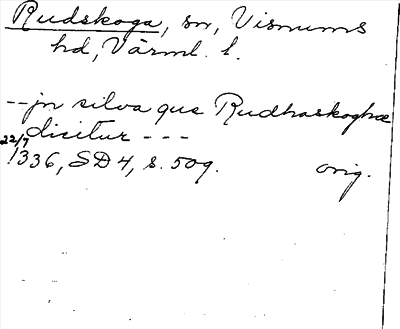 Rudskoga, sn, Visnums
hd, Värml. l.
-- jn silva que Rudhaskoghæ
dicitur ---
22/7
1336, SD 4, s. 509. orig.